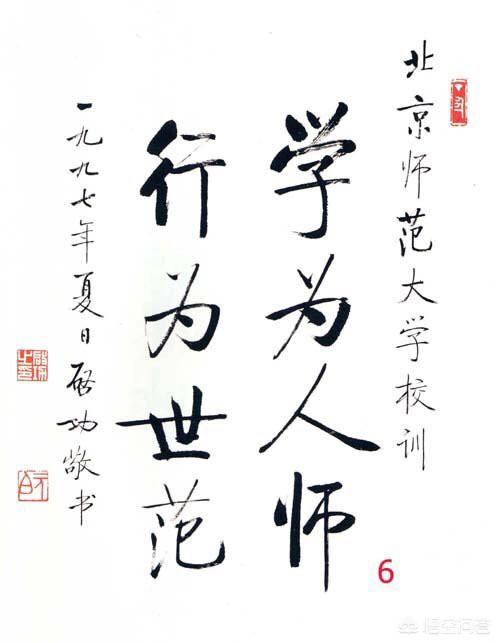 北京师范大学校训
学为人师
行为世范
一九九七年夏日启功敬书
6
悟空问答